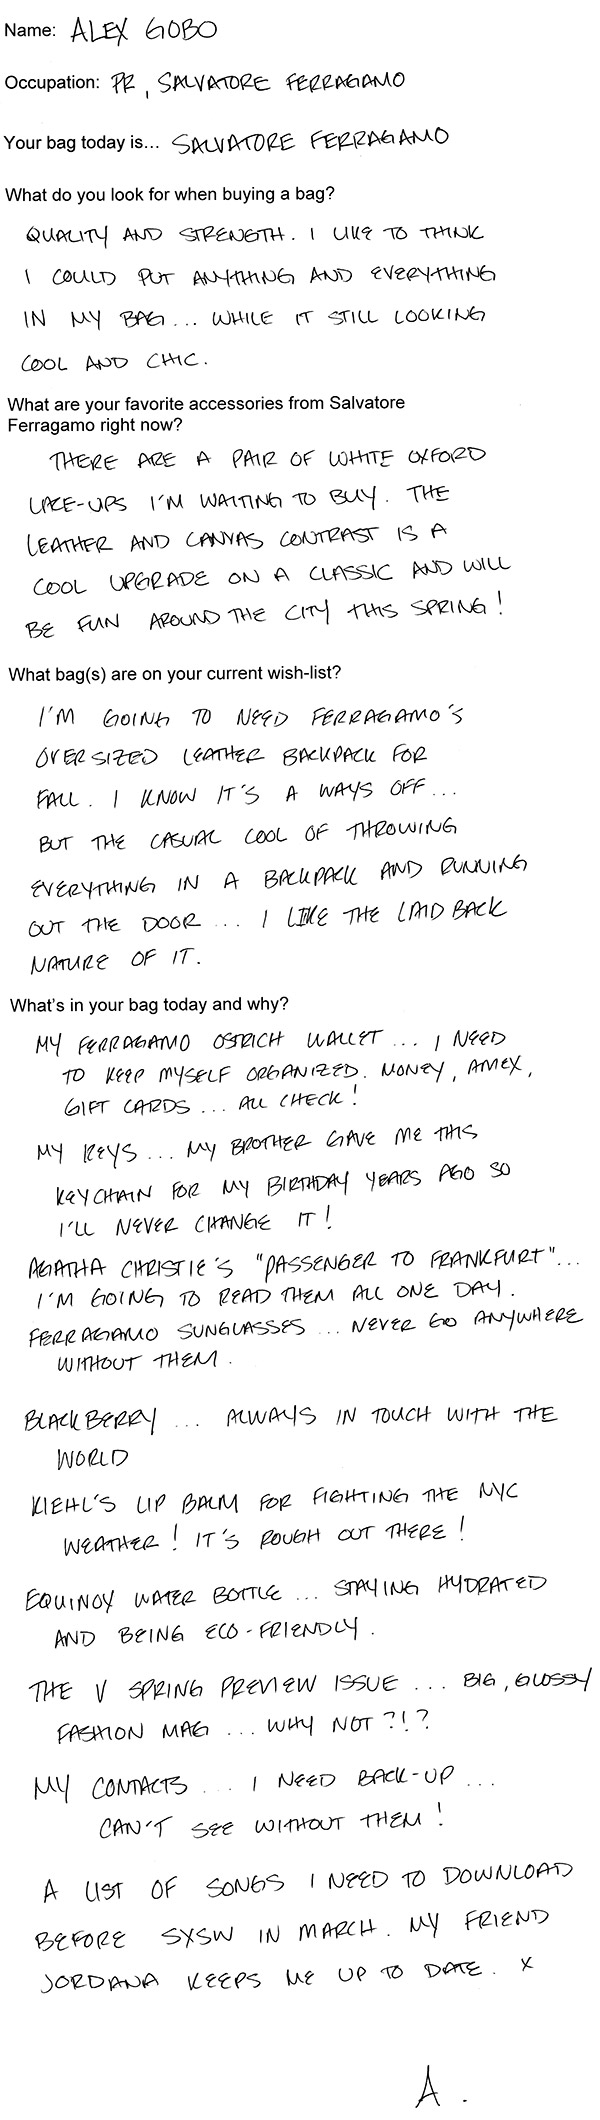 Name: ALEX GOBO
Occupation: PR, SALVATORE FERRAGAMO
Your bag today is... SALVATORE FERRAGAMO
What do you look for when buying a bag?
QUALITY AND STRENGTH. I LIKE TO THINK
I COULD PUT ANYTHING AND EVERYTHING
IN MY BAG... WHILE IT STILL LOOKING
COOL AND CHIC.
What are your favorite accessories from Salvatore
Ferragamo right now?
THERE ARE A PAIR OF WHITE OXFORD
LACE-UPS I'M WAITING TO BUY. THE
LEATHER AND CANVAS CONTRAST IS A
COOL UPGRADE ON A CLASSIC AND WILL
BE FUN AROUND THE CITY THIS SPRING!
What bag(s) are on your current wish-list?
I'M GOING TO NEED FERRAGAMO'S
OVERSIZED LEATHER BACKPACK FOR
FALL. I KNOW IT'S A WAYS OFF...
BUT THE CASUAL COOL OF THROWING
EVERYTHING IN A BACKPACK AND RUNNING
OUT THE DOOR... I LIKE THE LAID BACK
NATURE OF IT.
What's in your bag today and why?
MY FERRAGAMO OSTRICH WALLET... I NEED
TO KEEP MYSELF ORGANIZED. MONEY, AMEX,
GIFT CARDS... ALL CHECK!
MY KEYS... MY BROTHER GAVE ME THIS
KEYCHAIN FOR MY BIRTHDAY YEARS AGO SO
I'LL NEVER CHANGE IT!
AGATHA CHRISTIE'S "PASSENGER TO FRANKFURT"...
I'M GOING TO READ THEM ALL ONE DAY.
FERRAGAMO SUNGLASSES... NEVER GO ANYWHERE
WITHOUT THEM.
BLACKBERRY... ALWAYS IN TOUCH WITH THE
WORLD
KIEHL'S LIP BALM FOR FIGHTING THE NYC
WEATHER! IT'S ROUGH OUT THERE!
EQUINOX WATER BOTTLE... STAYING HYDRATED
AND BEING ECO-FRIENDLY.
THE V SPRING PREVIEW ISSUE... BIG, GLOSSY
FASHION MAG... WHY NOT?!?
MY CONTACTS... I NEED BACK-UP...
CAN'T SEE WITHOUT THEM!
A LIST OF SONGS I NEED TO DOWNLOAD
BEFORE SXSW IN MARCH. MY FRIEND
JORDANA KEEPS ME UP TO DATE. X
A.